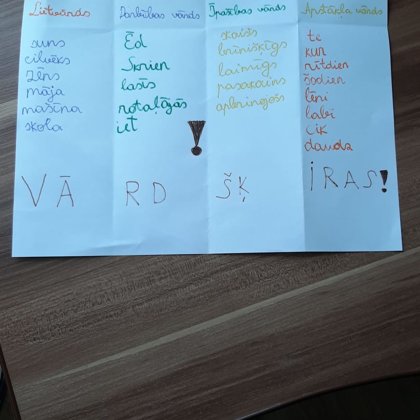 Lietvārds
suns
cilvēks
zēns
māja
mašīna
skola
Darbības vārds
Ēd
Skrien
lasīs
rotaļājās
iet
!
Īpašības vārds
skaists
brīnišķīgs
laimīgs
pasakains
apbrīnojošs
Apstākļa vārds
te
kur
rītdien
šodien
lēni
labi
cik
daudz
VĀ RD ŠĶ IRAS!